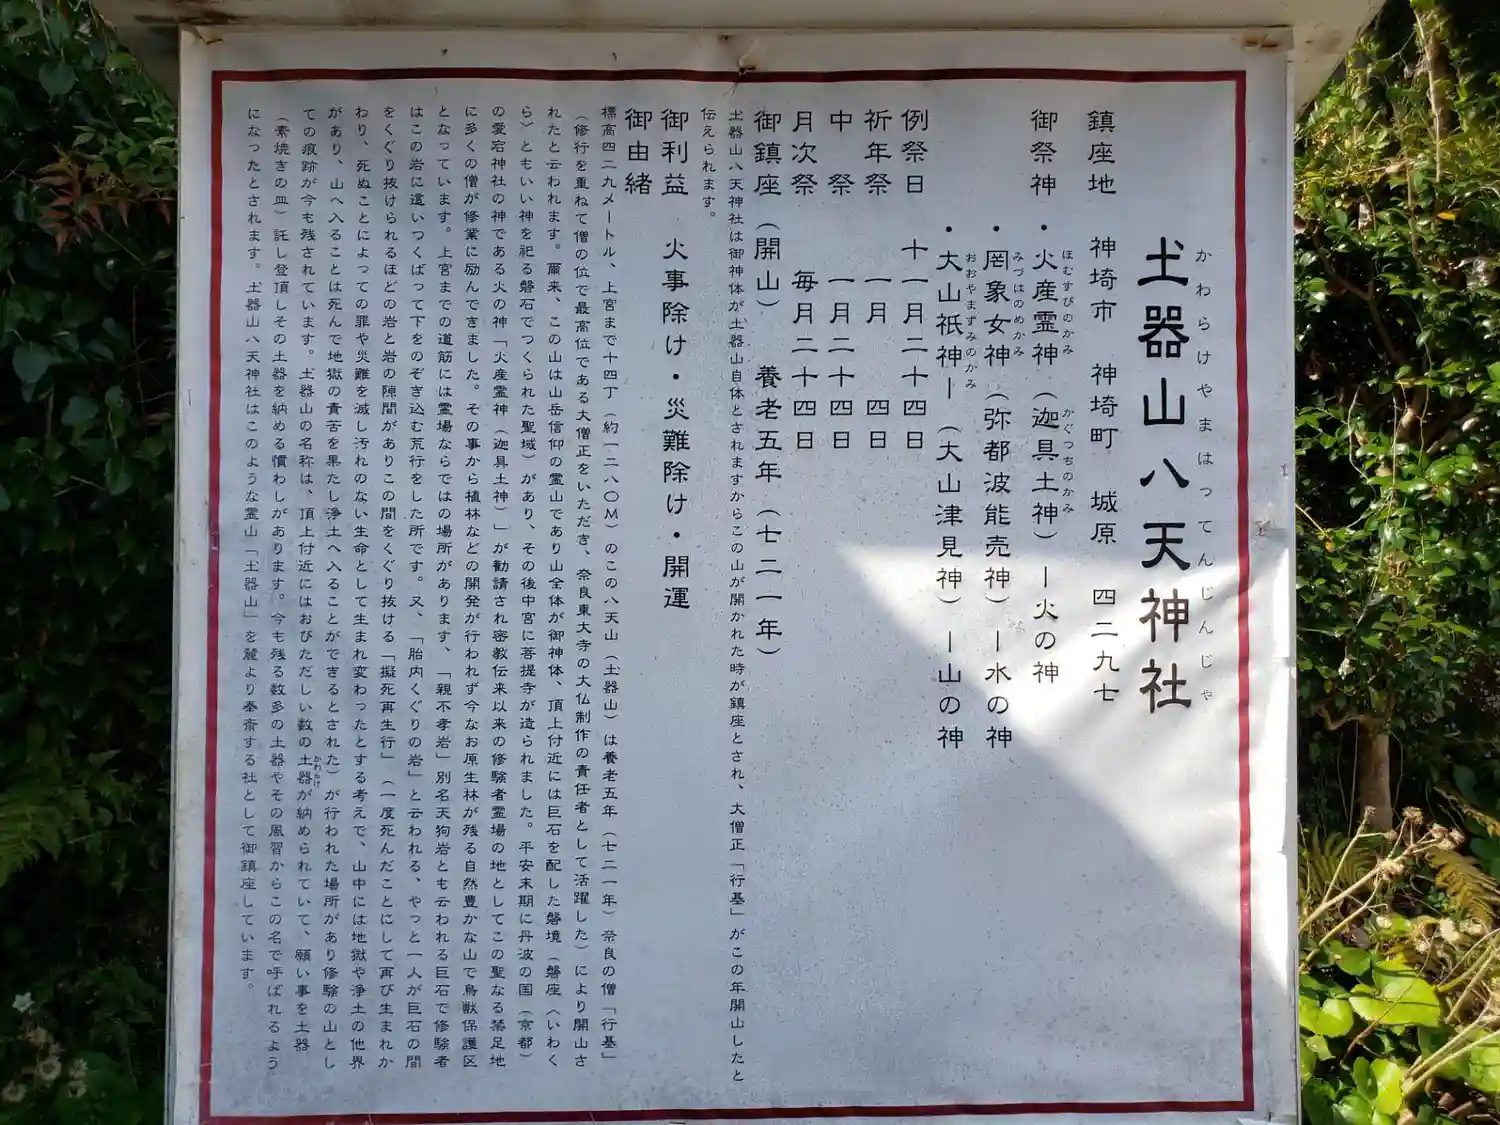 かわらけやまはってんじんじゃ
土器山八天神社
鎮座地　神埼市　神埼町　城原　四二九七
御祭神　・火産霊神（迦具土神）－火の神
ほむすびのかみ　かぐつちのかみ
・罔象女神（弥都波能売神）－水の神
みづはのめかみ
・大山祇神－（大山津見神）－山の神
おおやまずみのかみ
例祭日　十一月二十四日
祈年祭　一月　四日
中　祭　一月二十四日
月次祭　毎月二十四日
御鎮座（開山）　養老五年（七二一年）
土器山八天神社は御神体が土器山自体とされますからこの山が開かれた時が鎮座とされ、大僧正「行基」がこの年開山したと
伝えられます。
御利益　火事除け・災難除け・開運
御由緒
標高四二九メートル、上宮まで十四丁（約一二八〇M）のこの八天山（土器山）は養老五年（七二一年）奈良の僧「行基」
（修行を重ねて僧の位で最高位である大僧正をいただき、奈良東大寺の大仏制作の責任者として活躍した）により開山さ
れたと云われます。爾来、この山は山岳信仰の霊山であり山全体が御神体、頂上付近には巨石を配した磐境（磐座〈いわく
ら〉ともいい神を祀る磐石でつくられた聖域）があり、その後中宮に菩提寺が造られました。平安末期に丹波の国（京都）
の愛宕神社の神である火の神「火産霊神（迦具土神）」が勧請され密教伝来以来の修験者霊場の地としてこの聖なる禁足地
に多くの僧が修業に励んできました。その事から植林などの開発が行われず今なお原生林が残る自然豊かな山で鳥獣保護区
となっています。上宮までの道筋には霊場ならではの場所があります、「親不孝岩」別名天狗岩とも云われる巨石で修験者
はこの岩に這いつくばって下をのぞき込む荒行をした所です。又、「胎内くぐりの岩」と云われる、やっと一人が巨石の間
をくぐり抜けられるほどの岩と岩の隙間がありこの間をくぐり抜ける「擬死再生行」（一度死んだことにして再び生まれか
わり、死ぬことによっての罪や災難を滅し汚れのない生命として生まれ変わったとする考えで、山中には地獄や浄土の他界
があり、山へ入ることは死んで地獄の責苦を果たし浄土へ入ることができるとされた）が行われた場所があり修験の山とし
ての痕跡が今も残されています。土器山の名称は、頂上付近にはおびただしい数の土器が納められていて、願い事を土器
かわらけ
（素焼きの皿）託し登頂しその土器を納める慣わしがあります。今も残る数多の土器やその風習からこの名で呼ばれるよう
になったとされます。土器山八天神社はこのような霊山「土器山」を麓より奉斎する社として御鎮座しています。